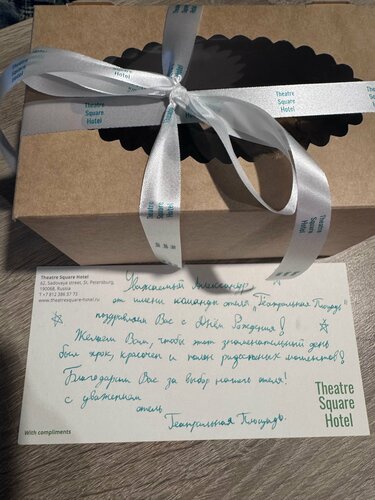 Theatre
Square
Hotel
Theatre
Square
Hotel
Theatre
Square
Hotel
Theatre Square Hotel
62, Sadovaya street, St. Petersburg,
190068, Russia
T +7 812 386 57 73
www.theatresquare-hotel.ru
Уважаемый Александр
от имени команды отеля "Театральная Площадь"
поздравляем Вас с Днём Рождения!
Желаем Вам, чтобы этот знаменательный день
был ярок, красочен и полон радостных моментов!
Благодарим Вас за выбор нашего отеля!
с уважением
отель
Театральная Площадь.
Theatre
Square
Hotel
With compliments